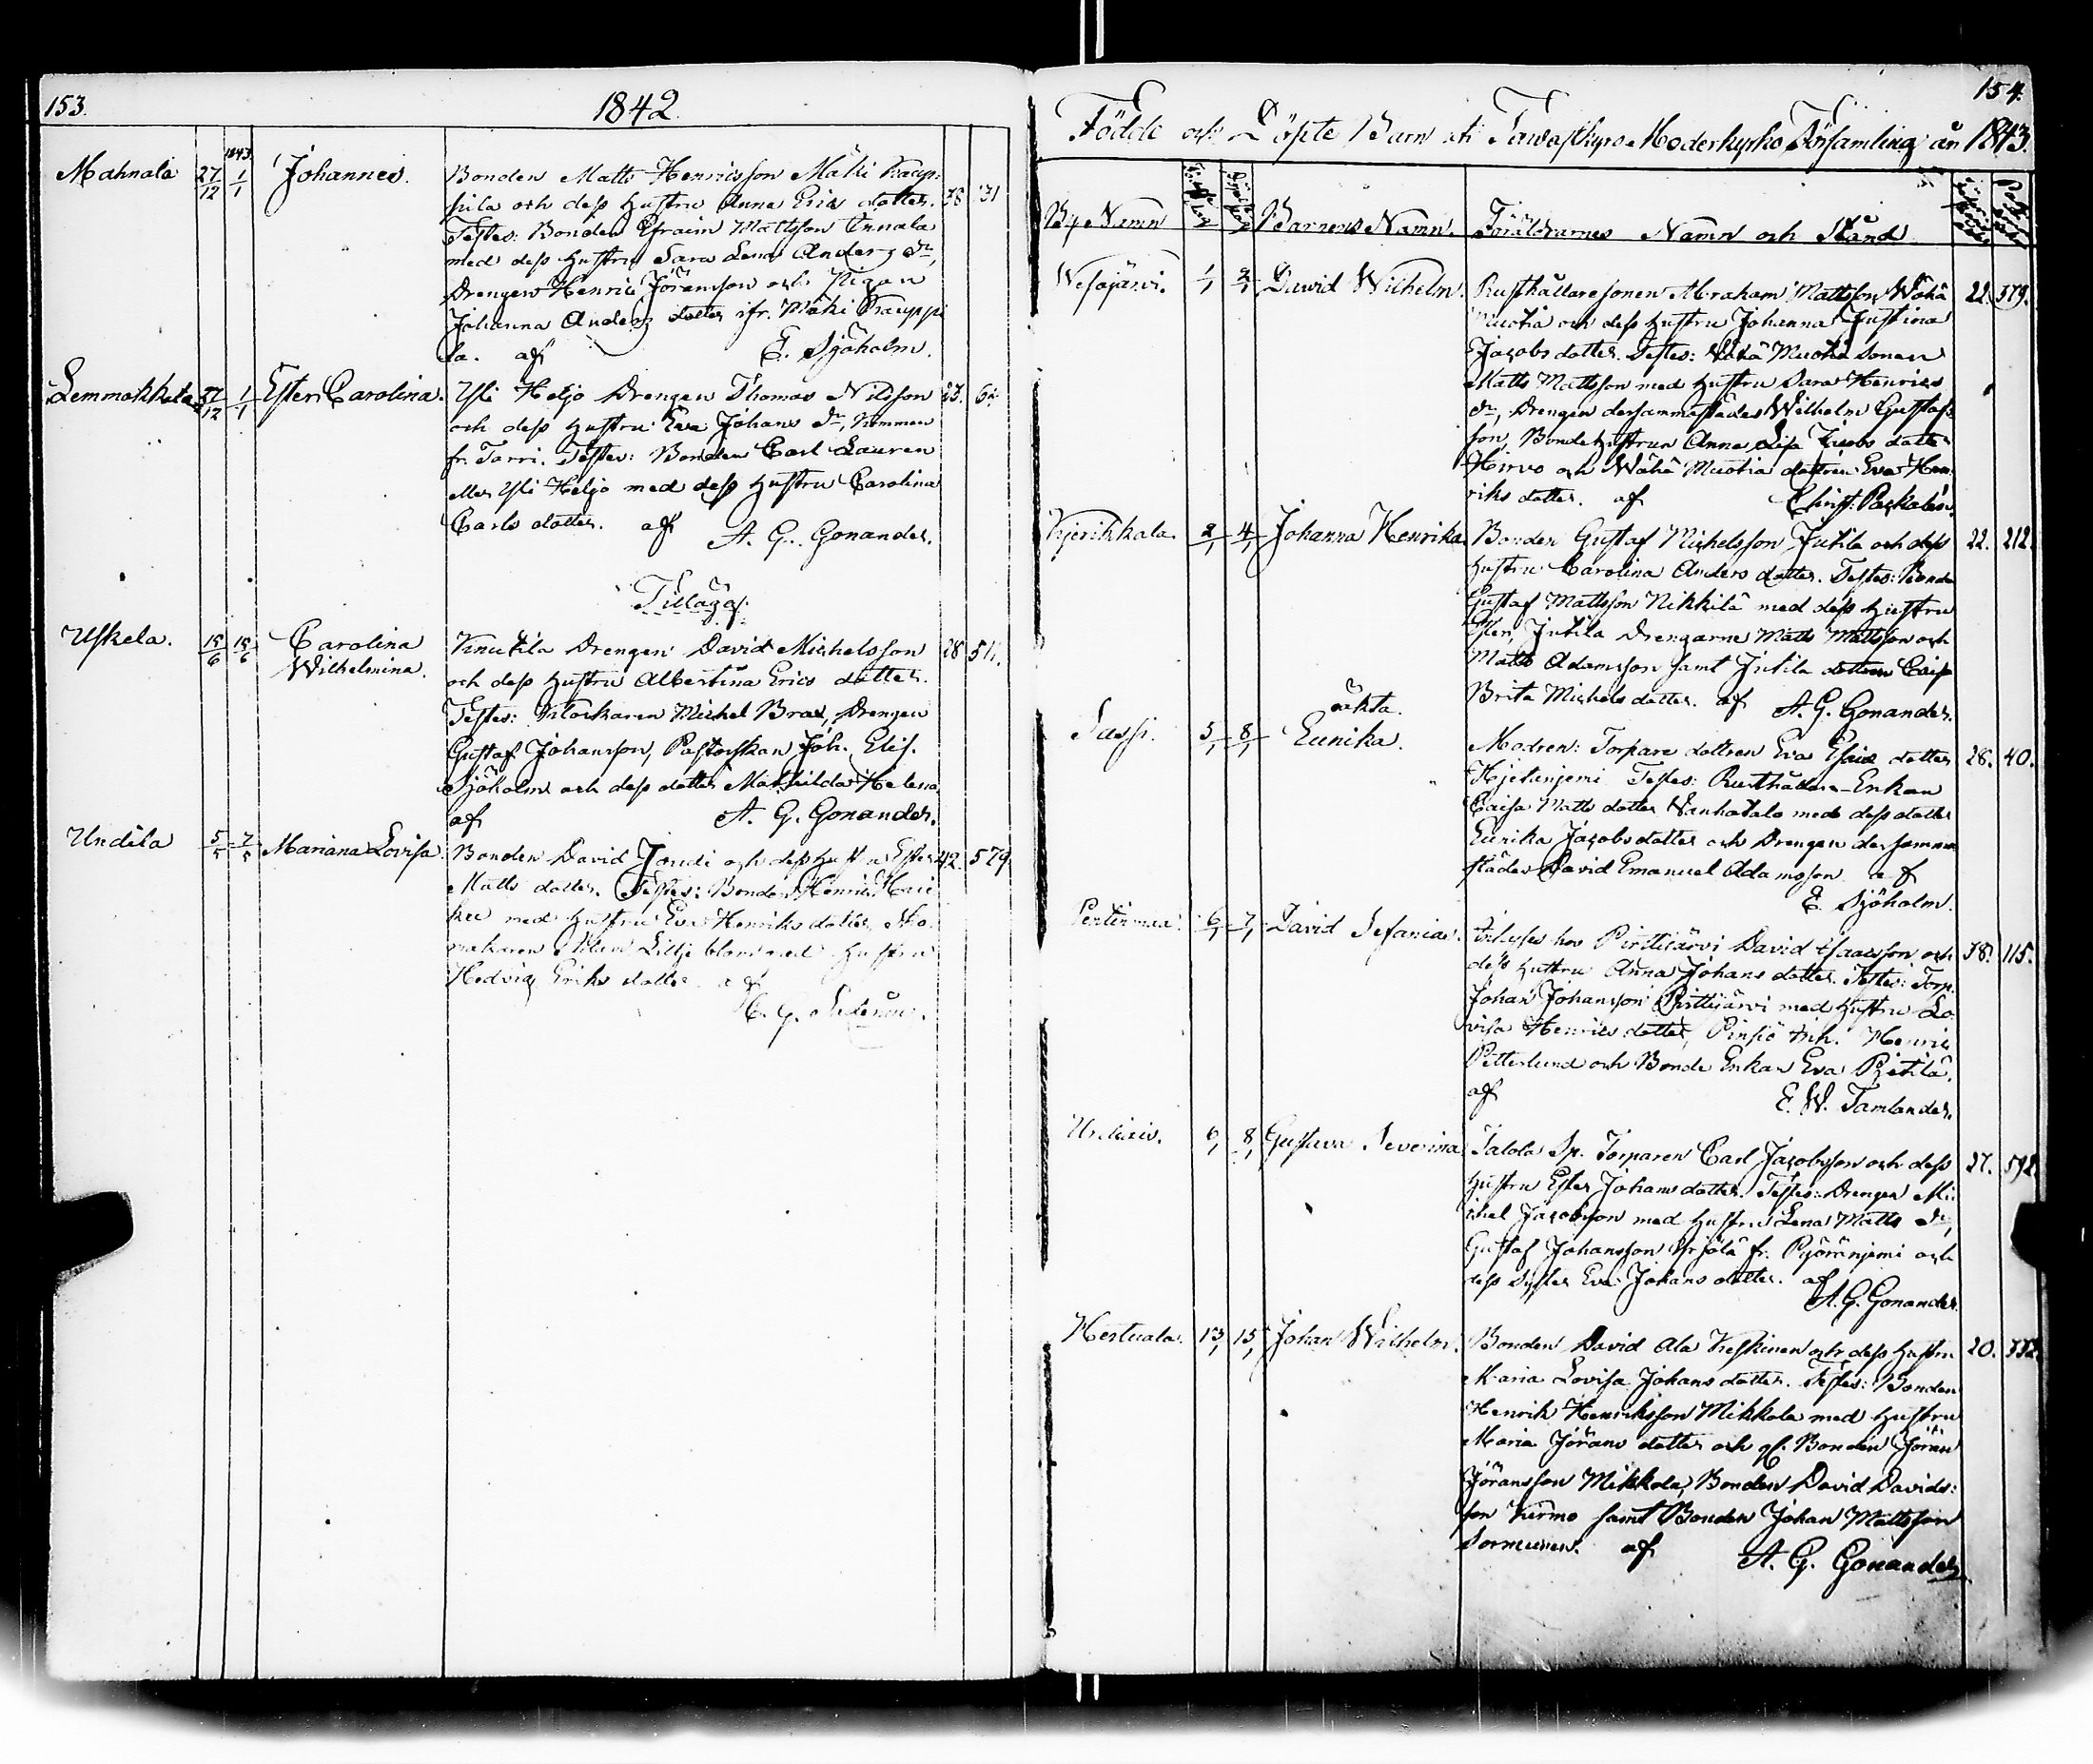 153.
1842.
1843
Mahnala 27/12 1/1 Johannes. Bonden Matts Henricsson Mäki Kaup-
pila och dess hustru Anna Erics dotter. 38 31
Testes: Bonden Efraim Mattsson Ennala
med dess hustru Sara Lena Anders dr,
Drengen Henric Jöransson och Pigan
Johanna Anders dotter ifr. Mäki Kauppi
la. af E. Sjöholm.
Lemmakkala 27/12 1/1 Ester Carolina. Yli Heljo Drengen Thomas Nilsson 23. 62
och dess hustru Eva Johans dr, kommen
fr. Torri. Testes: Bonden Carl Lauren
eller Yli Heljo med dess hustru Carolina
Carls dotter. af A. G. Gonander.
Tillägg.
Uskela. 15/6 18/6 Carolina Knutila Drengen David Michelsson 28 511.
Wilhelmina. och dess hustru Albertina Erics dotter.
Testes: Klockaren Michel Brax, Drengen
Gustaf Johansson, Pastorskan Joh. Elis.
Sjöholm och dess dotter Mathilda Helena
af A. G. Gonander.
Undila 5/5 7/5 Mariana Lovisa. Bonden David Joudi och dess hustru Ester 42 579
Matts dotter. Testes: Bonden Henric
med hustru Eva Henriks dotter, Sko-
makaren Lillje blom med hustru
Hedvig Eriks dotter. af
154.
Födde och Döpte Barn uti Tawastkyro Moderkyrko Församling år 1843.
By Namn Barnens Namn. Föräldrarnes Namn och Stånd
Wesajärvi. 1/1 2/1 David Wilhelm. Rusthållaresonen Abraham Mattsson Wähä 22. 379.
Muotia och dess hustru Johanna Justina
Jacobs dotter. Testes: Wähä Muotia Sonen
Matts Mattsson med hustru Sara Henrics
dr, Drengen dersammastädes Wilhelm Gustafs-
son, Bondehustrun Anna Lisa Jacobs dotter
Hirvo och Wähä Muotia dottren Eva Hen-
riks dotter. af
Kyrikkala. 2/1 4/1 Johanna Henrika. Bonden Gustaf Michelsson Jutila och dess 22. 212.
hustru Carolina Anders dotter. Testes: Bonde
Gustaf Mattsson Nikkilä med dess hustru
Ester, Jutila Drengarne Matts Mattsson och
Matts Adamsson samt Jutila dottren Caisa
oäkta. Brita Michels dotter. af A. G. Gonander.
Sassi. 5/1 8/1 Eunika. Modren: Torpare dottren Eva Esaiæ dotter 28. 40.
Hjetanjemi Testes: Rusthållare Enkan
Caisa Matts dotter Vanhatalo med dess dotter
Eunika Jacobs dotter och Drengen der samma
städes David Emanuel Adamsson af
E. Sjöholm.
Pentinmaa. 6/1 7/1 David Sefanias. Inhyses hos Pirttijärvi David Isaacsson och 38. 115.
dess hustru Anna Johans dotter. Testes: Torp.
Johan Johansson Pirttijärvi med hustru Lo-
visa Henrics dotter, Pinsiö Inh. Henric
Petterlund och Bonde Enkan Eva Pietilä,
af E. W. Tamlander.
6/1 8/1 Gustava Severina. Talola Sp. Torparen Carl Jacobsson och dess 27. 592.
hustru Ester Johans dotter. Testes: Drengen Mi-
chel Jacobsson med hustru Lena Matts dr,
Gustaf Johansson Yrjölä fr. Pyöränjemi och
dess syster Eva Johans dotter. af
A. G. Gonander.
Hertuala. 13/1 15/1 Johan Wilhelm. Bonden David Ala Keskinen och dess hustru 20. 332.
Maria Lovisa Johans dotter. Testes: Bonden
Henrik Henriksson Mikkola med hustru
Maria Jörans dotter och gl. Bonden Jöran
Jöransson Mikkola, Bonden David Davids-
son Kurmo samt Bonden Johan Mattsson
Sormunen. af A. G. Gonander